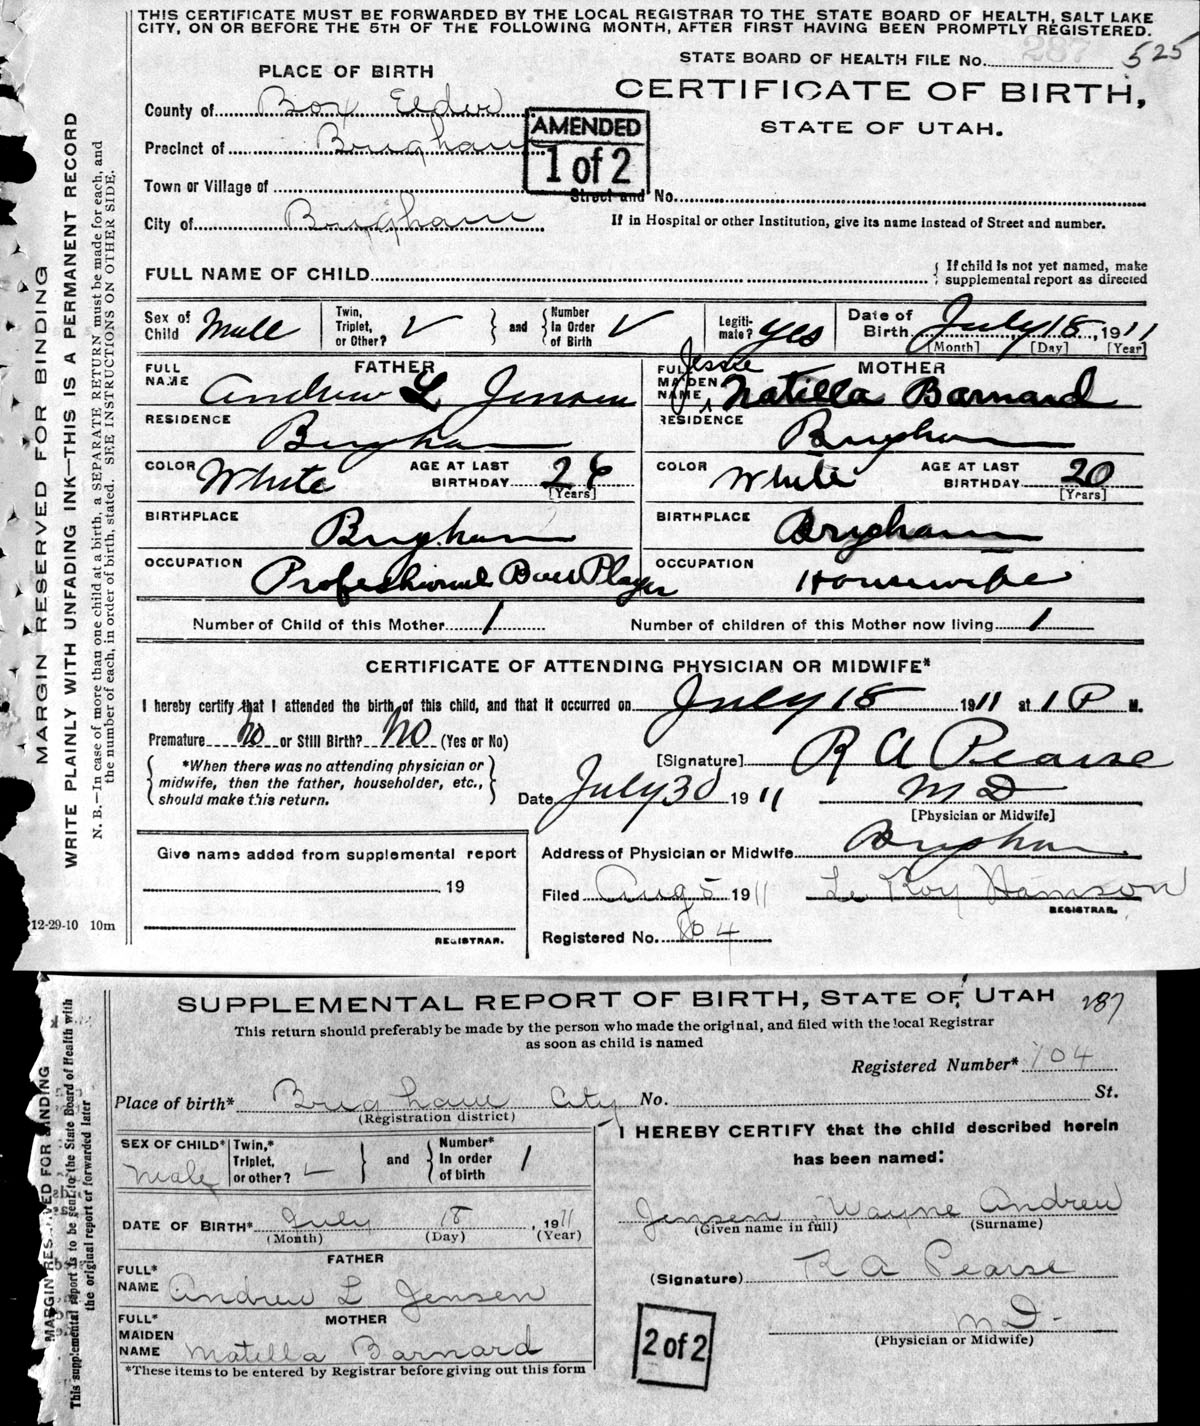 THIS CERTIFICATE MUST BE FORWARDED BY THE LOCAL REGISTRAR TO THE STATE BOARD OF HEALTH, SALT LAKE
CITY, ON OR BEFORE THE 5TH OF THE FOLLOWING MONTH, AFTER FIRST HAVING BEEN PROMPTLY REGISTERED.
287
STATE BOARD OF HEALTH FILE No. 525
PLACE OF BIRTH
CERTIFICATE OF BIRTH,
STATE OF UTAH.
County of Box Elder
Precinct of Brigham
AMENDED
1 of 2
Town or Village of
Street and No.
City of Brigham
If in Hospital or other Institution, give its name instead of Street and number.
FULL NAME OF CHILD
{ If child is not yet named, make
supplemental report as directed
Sex of Child Male
Twin, Triplet, or Other? ✓ } and { Number In Order of Birth ✓
Legiti-mate? yes
Date of Birth July 18, 1911
[Month] [Day] [Year]
FATHER
FULL NAME Andrew L Jensen
RESIDENCE Brigham
COLOR White
AGE AT LAST BIRTHDAY 26
[Years]
BIRTHPLACE Brigham
OCCUPATION Professional Player
MOTHER
FULL MAIDEN NAME Jessie Matilla Barnard
RESIDENCE Brigham
COLOR White
AGE AT LAST BIRTHDAY 20
[Years]
BIRTHPLACE Brigham
OCCUPATION Housewife
Number of Child of this Mother 1
Number of children of this Mother now living 1
CERTIFICATE OF ATTENDING PHYSICIAN OR MIDWIFE*
I hereby certify that I attended the birth of this child, and that it occurred on July 18 1911 at 1 P M.
Premature no or Still Birth? no (Yes or No)
{ *When there was no attending physician or
midwife, then the father, householder, etc.,
should make this return. }
[Signature] R A Pearse
Date July 30 1911 M D
[Physician or Midwife]
Give name added from supplemental report
19
REGISTRAR.
Address of Physician or Midwife Brigham
Filed Aug 5 1911 Le Roy
REGISTRAR.
Registered No. 104
MARGIN RESERVED FOR BINDING
WRITE PLAINLY WITH UNFADING INK—THIS IS A PERMANENT RECORD
N. B.—In case of more than one child at a birth, a SEPARATE RETURN must be made for each, and
the number of each, in order of birth, stated. SEE INSTRUCTIONS ON OTHER SIDE.
12-29-10 10m
SUPPLEMENTAL REPORT OF BIRTH, STATE OF UTAH 287
This return should preferably be made by the person who made the original, and filed with the local Registrar
as soon as child is named
Registered Number* 104
Place of birth* Brigham City No. St.
(Registration district)
SEX OF CHILD* Male
Twin,* Triplet, or other? ✓ } and { Number* In order of birth 1
DATE OF BIRTH* July 18, 1911
(Month) (Day) (Year)
FATHER
FULL* NAME Andrew L Jensen
MOTHER
FULL* MAIDEN NAME Matella Barnard
*These items to be entered by Registrar before giving out this form
I HEREBY CERTIFY that the child described herein
has been named:
Jensen, Wayne Andrew
(Given name in full) (Surname)
(Signature) R A Pearse
M D.
(Physician or Midwife)
2 of 2
MARGIN RESERVED FOR BINDING
This supplemental report is to be sent to the State Board of Health with
the original report or forwarded later